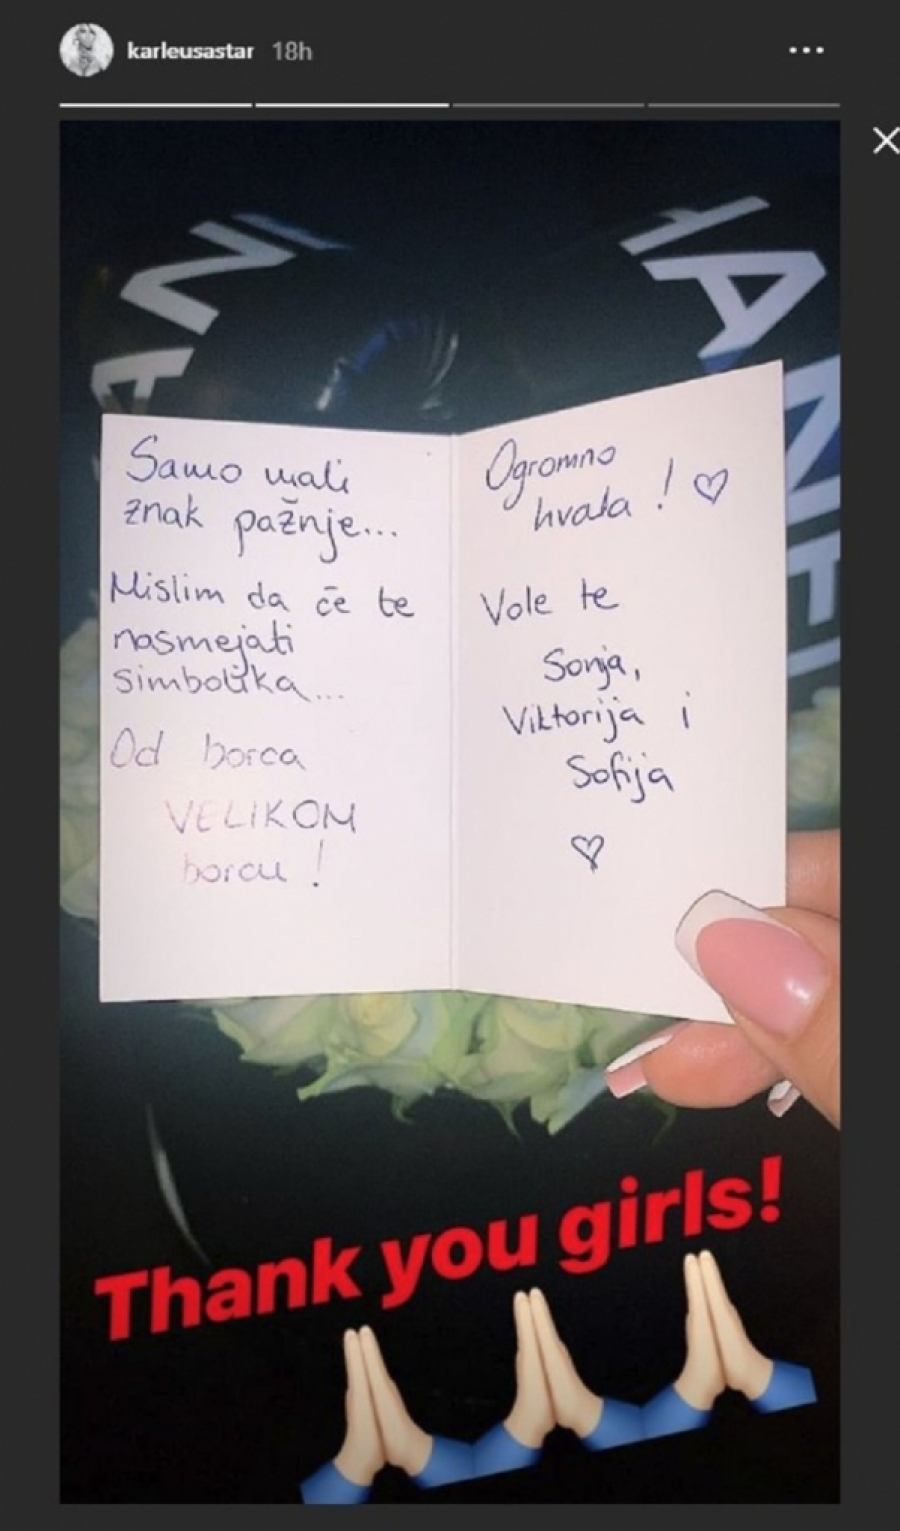 karleusastar 18h
Samo mali
znak pažnje...
Mislim da će te
nasmejati
simbolika...
Od borca
VELIKOM
borcu!
Ogromno
hvala! ♡
Vole te
Sonja,
Viktorija i
Sofija
♡
Thank you girls!